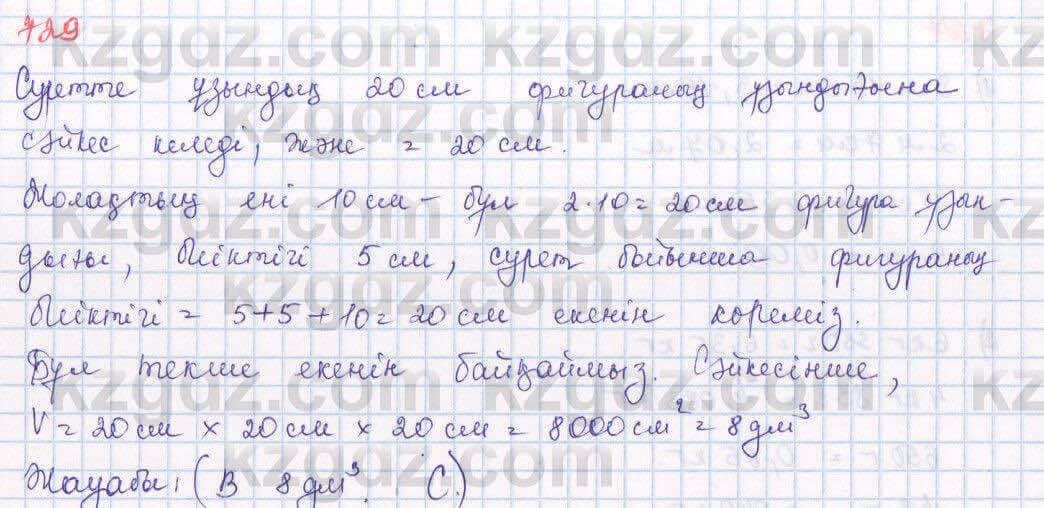 729
Суретте ұзындық 20 см фигураның ұзындығына
сәйкес келеді, және = 20 см.
Жолақтың ені 10 см - бұл 2·10 = 20 см фигура ұзын-
дығы, биіктігі 5 см, сурет бойынша фигураның
биіктігі = 5+5+10 = 20 см екенін көреміз.
Бұл текше екенін байқаймыз. Сәйкесінше,
V = 20 см × 20 см × 20 см = 8000 см² = 8 дм³
Жауабы: (B 8 дм³. C.)
kzgdz.com